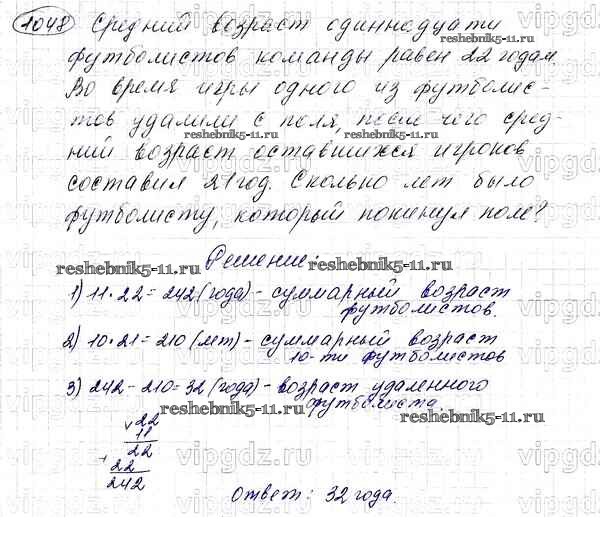 1048 Средний возраст одиннадцати
футболистов команды равен 22 годам.
Во время игры одного из футболис-
тов удалили с поля, после чего сред-
reshebnik5-11.ru reshebnik5-11.ru
ний возраст оставшихся игроков
составил 21 год. Сколько лет было
футболисту, который покинул поле?
Решение:
reshebnik5-11.ru reshebnik5-11.ru
1) 11·22=242 (года) - суммарный возраст
футболистов.
2) 10·21=210 (лет) - суммарный возраст
10-ти футболистов
3) 242-210=32 (года) - возраст удаленного
футболиста.
reshebnik5-11.ru reshebnik5-11.ru
×22
11
22
+
22
242
Ответ: 32 года.
vipgdz.ru